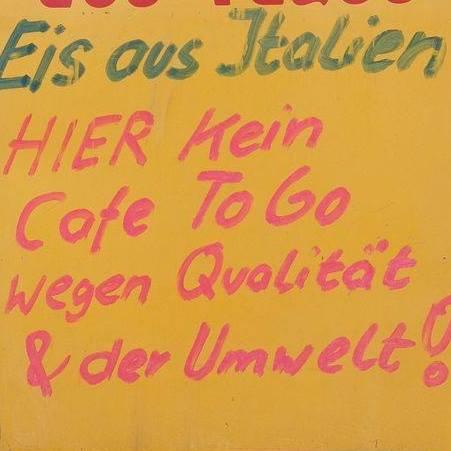 Eis aus Italien
HIER Kein
Cafe To Go
wegen Qualität
& der Umwelt!